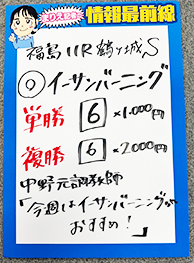 とりえ記者の
情報最前線
福島11R鶴ヶ城S
◎イーサンバーニング
単勝 6 ×1.000円
複勝 6 ×2000円
中野元調教師
「今週はイーサンバーニングが
おすすめ！」